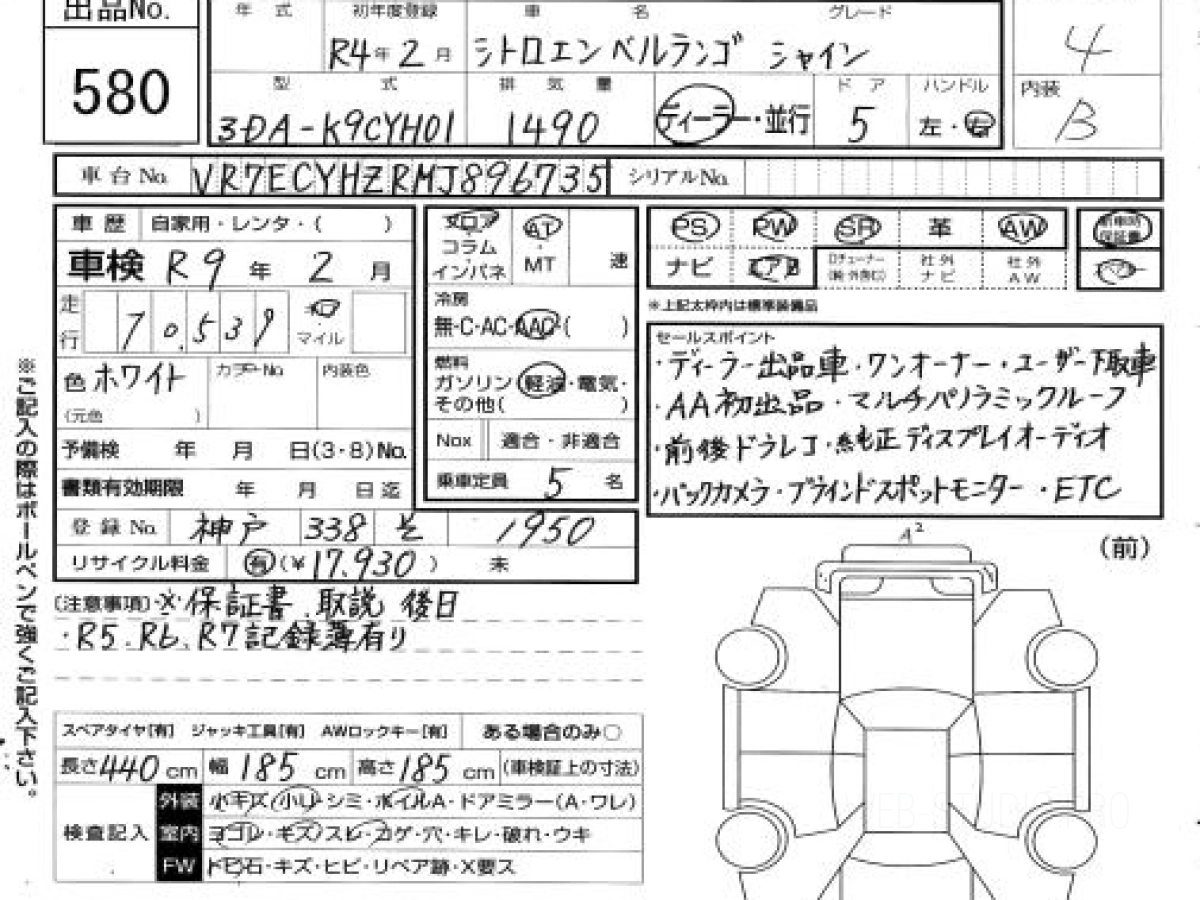 出品No.
580
年 式 初年度登録 車 名 グレード
R4年2月 シトロエン ベルランゴ シャイン
4
型 式 排 気 量 ドア ハンドル
3DA-K9CYH01 1490 ディーラー・並行 5 左・右
内装
B
車台No. VR7ECYHZRMJ896735 シリアルNo.
車 歴 自家用・レンタ・( )
車検 R9年 2月
走行 70,539 マイル
色 ホワイト カラーNo 内装色
(元色 )
予備検 年 月 日(3・8)No.
書類有効期限 年 月 日迄
登録No. 神戸 338 そ 1950
リサイクル料金 有(¥17,930) 未
フロア
コラム
インパネ
AT
・
MT
速
冷房
無・C・AC・AAC( )
燃料
ガソリン・軽油・電気・
その他( )
Nox 適合・非適合
乗車定員 5 名
PS PW SR 革 AW 新車時保証書
ナビ エアB 社外ナビ 社外AW
※上記太枠内は標準装備品
セールスポイント
・ディーラー出品車・ワンオーナー・ユーザー下取車
・AA初出品・マルチパノラミックルーフ
・前後ドラレコ・純正ディスプレイオーディオ
・バックカメラ・ブラインドスポットモニター・ETC
(注意事項)・※保証書、取説 後日
・R5、R6、R7記録簿有り
A2
(前)
スペアタイヤ[有] ジャッキ工具[有] AWロックキー[有] ある場合のみ○
長さ440cm 幅185cm 高さ185cm (車検証上の寸法)
検査記入
外装 小キズ・小凹・シミ・ホイルA・ドアミラー(A・ワレ)
室内 ヨゴレ・キズ・スレ・コゲ・穴・キレ・破れ・ウキ
FW トビ石・キズ・ヒビ・リペア跡・X要ス
※ご記入の際はボールペンで強くご記入下さい。